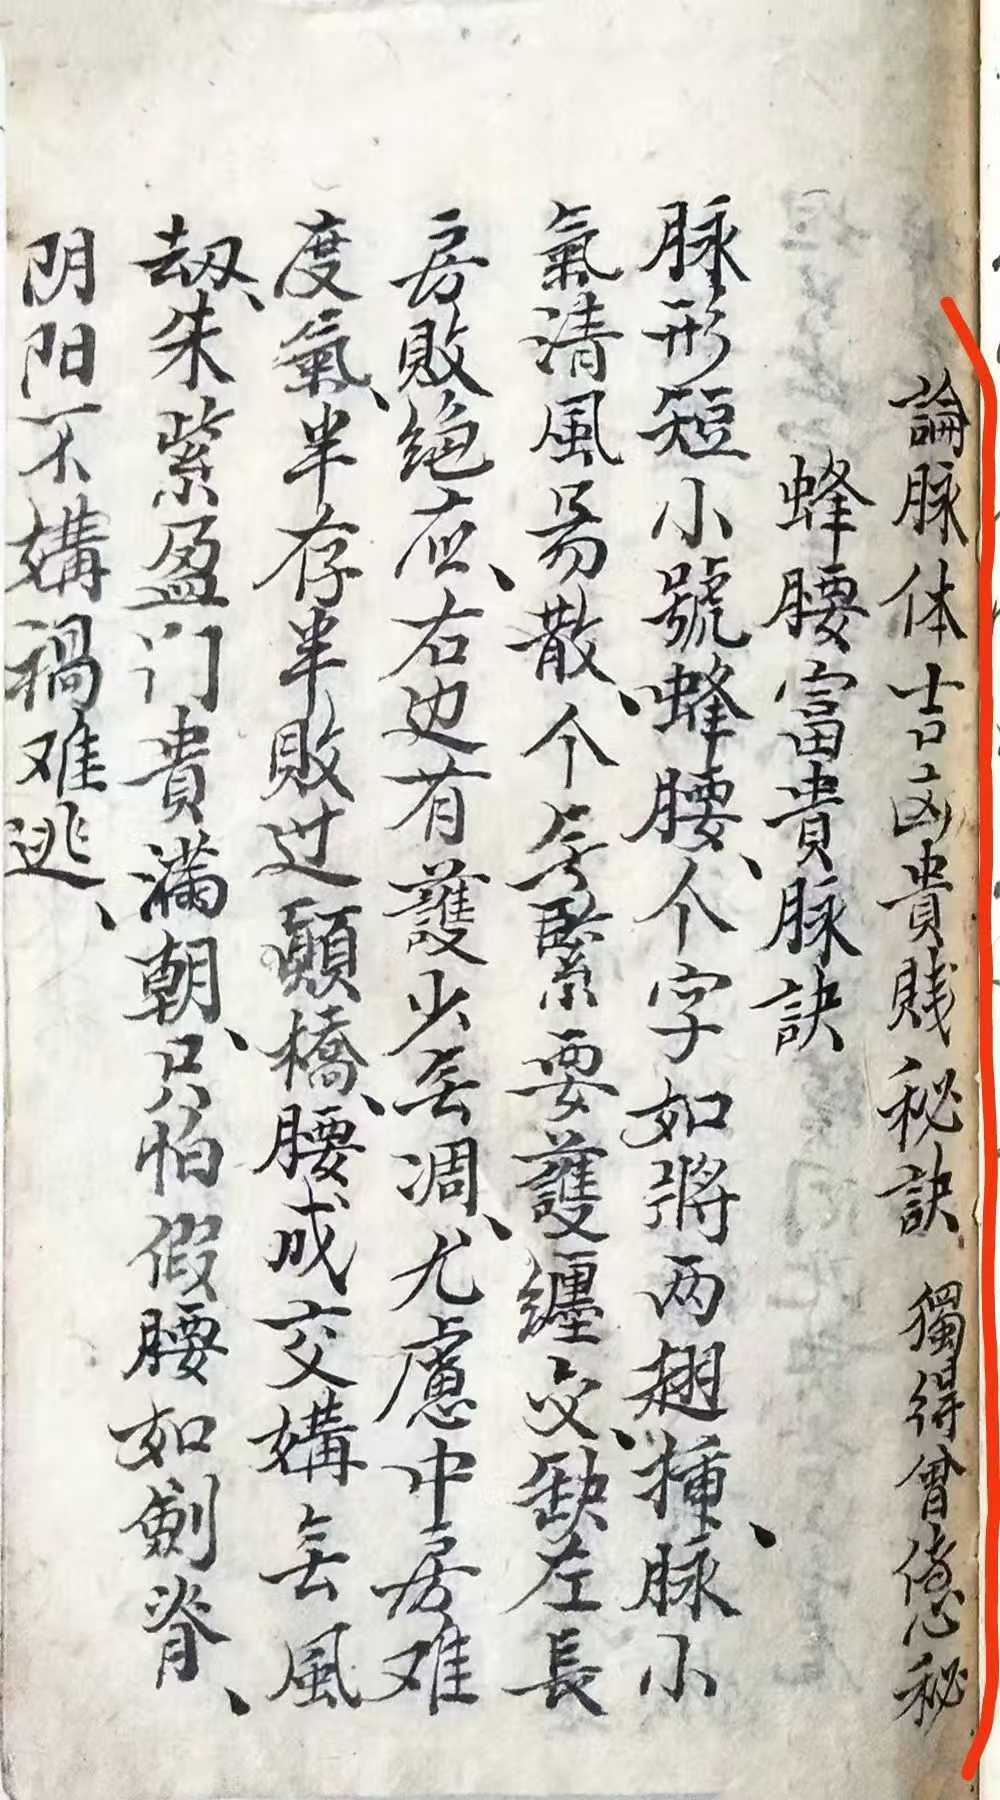 論脉体吉凶貴賎秘訣　獨得曾億秘
蜂腰富貴脉訣
脉形短小號蜂腰、个字如將两翅揷、脉小
氣清風易散、个字緊要護纏交、缺左長
房敗绝应、右边若護少丢凋、尤慮中房难
度氣、半存半敗过顛橋、腰成交媾无風
劫、朱紫盈门貴滿朝、只怕假腰如劍脊、
阴阳不媾禍难逃、